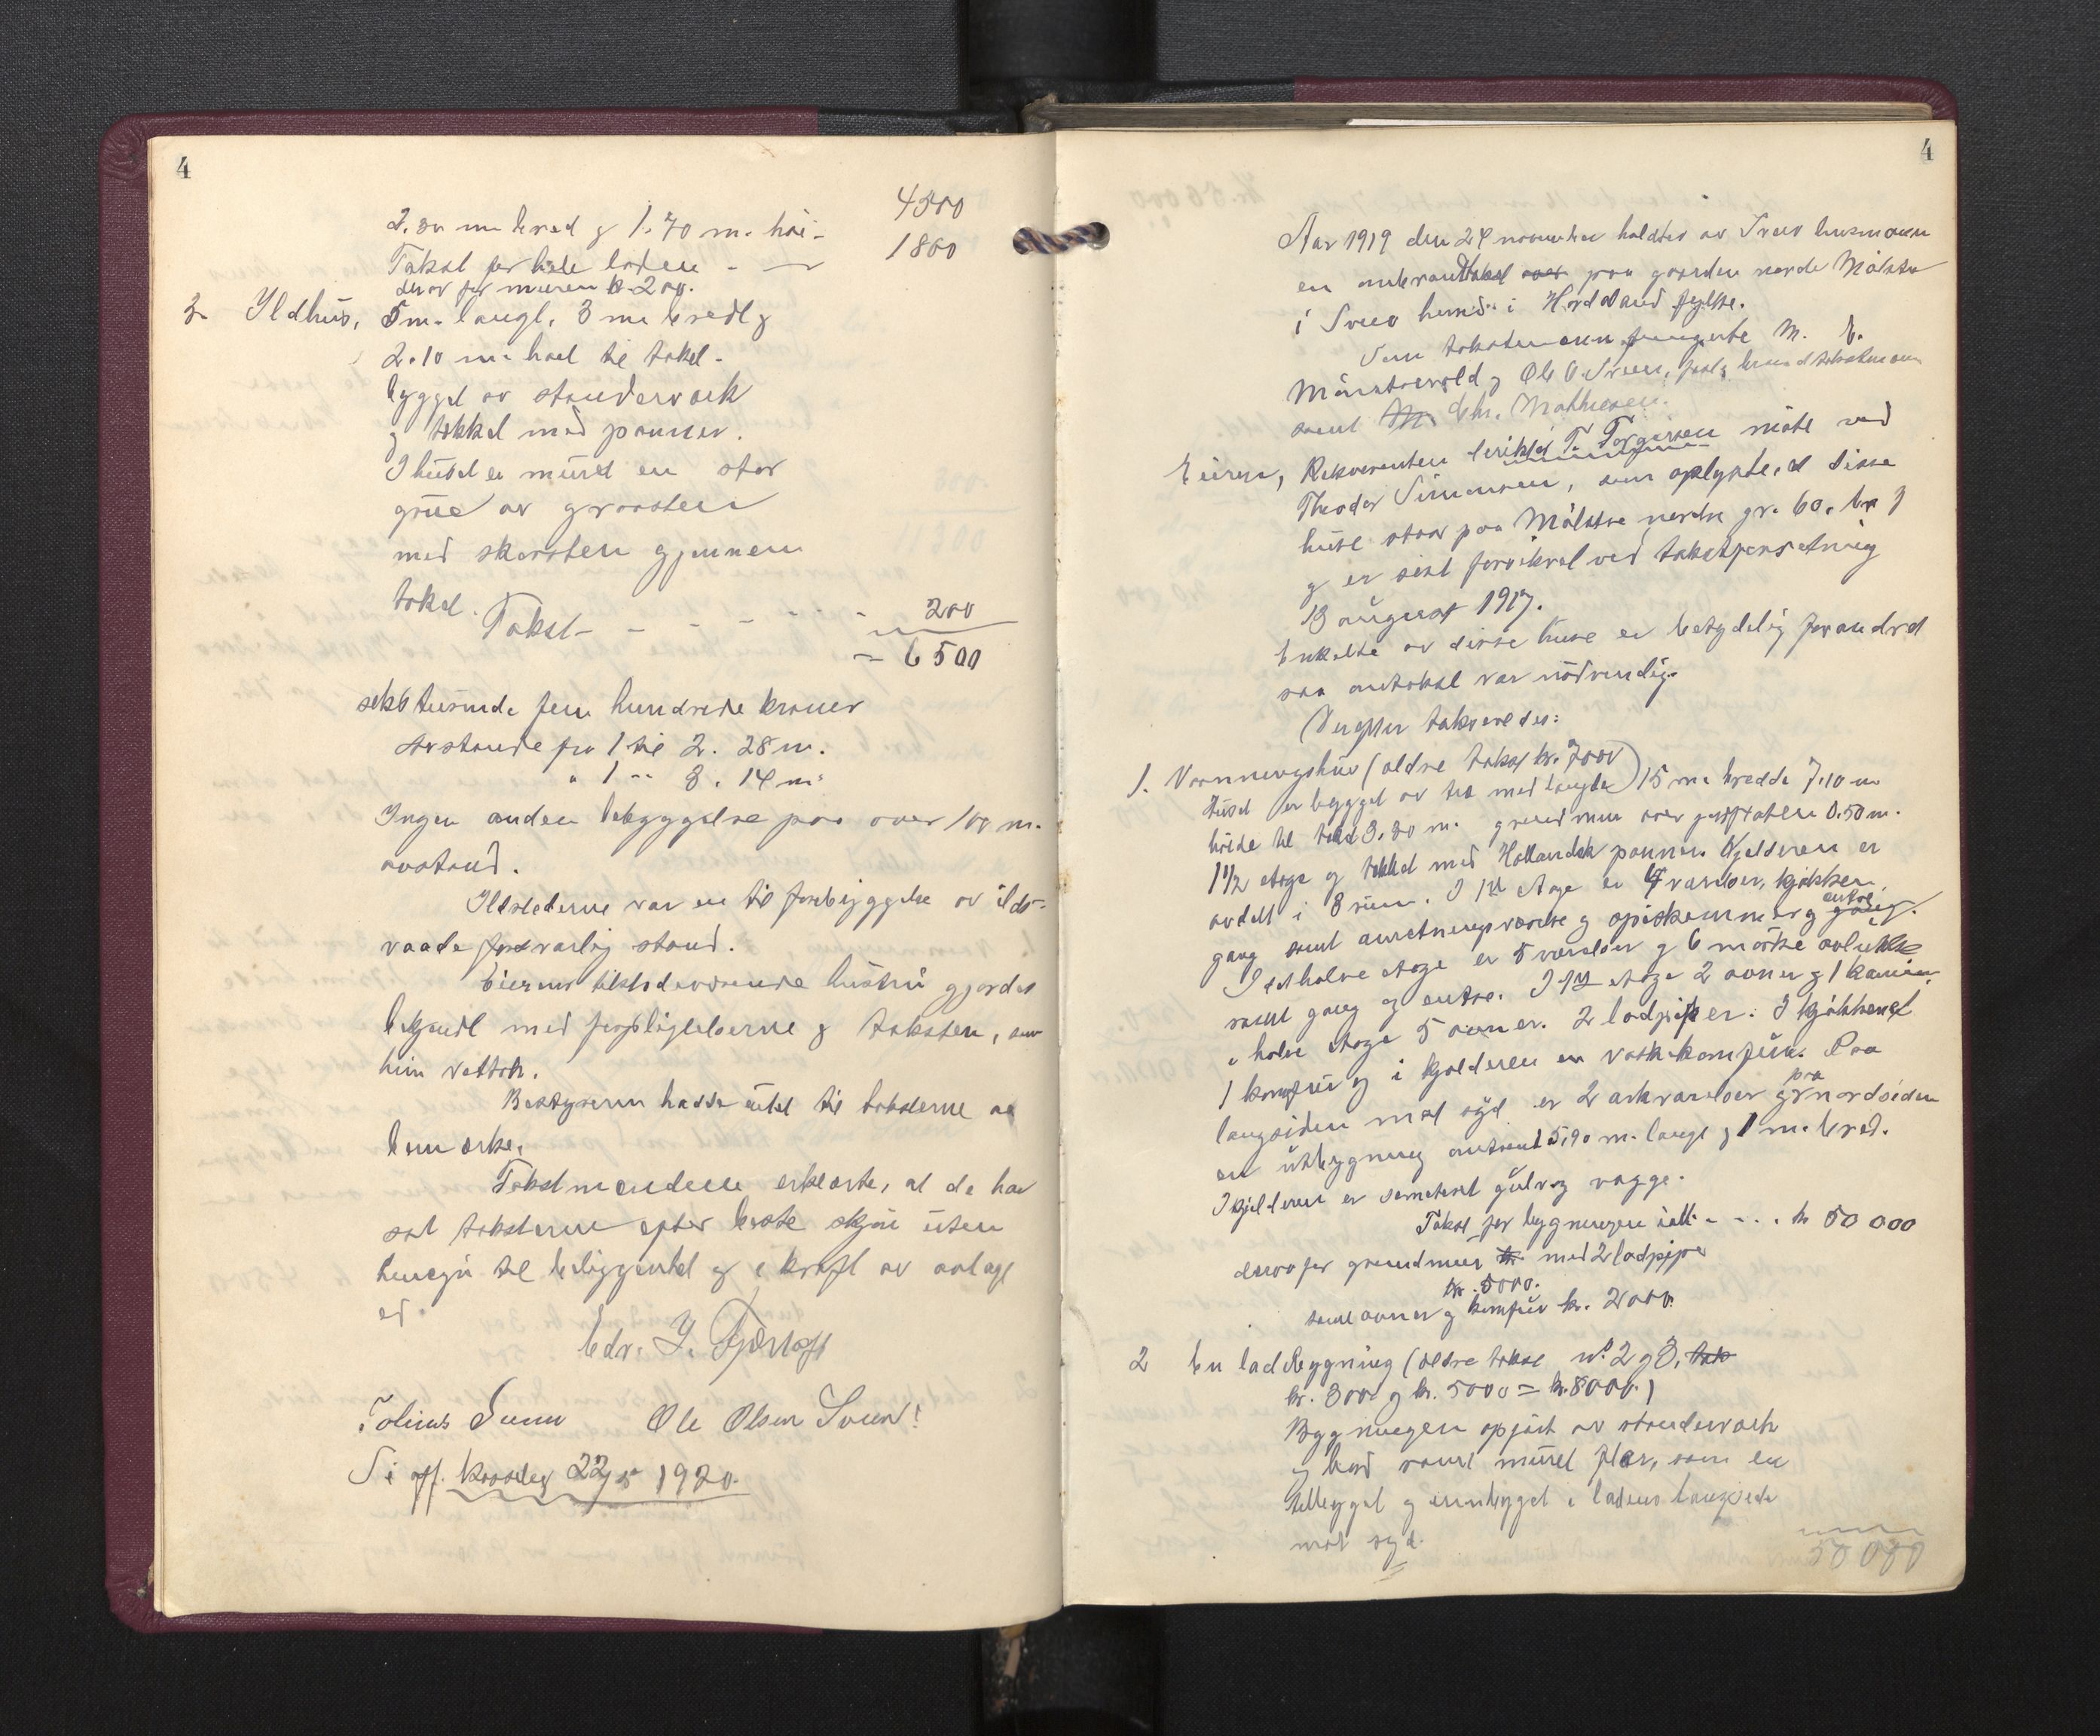 4
4500
2.30 m bred g 1.70 m. høi -
1800
Takst for hele loden - —
derav for muren kr. 200.
3. Ildhus, 5 m. langt, 3 m bredt g
2.10 m. høit til taket -
bygget av standerverk
g tekket med panner.
I huset er muret en stor
grue av graasten
med skorsten gjennem
taket.
Takst - - - - - - 200
- 6500
seks tusinde fem hundrede kroner
Avstande fra 1 til 2. 28 m.
" 1 " 3. 14 m.
Ingen anden bebyggelse paa over 100 m.
avstand.
Ildstederne var en til forebyggelse av ilds-
vaade forsvarlig stand.
Eierens tilstedeværende hustru gjordes
bekjendt med forpligtelserne g taksten, som
hun vettok.
Bestyreren hadde intet til taksterne at
bemerke.
Takstmændene erklærte, at de har
sat taksterne efter beste skjøn uten
hensyn til beliggenhet g i kraft av avlagt
ed.
Edv. J.
Ole Olsen Sveen
1920.
4
Aar 1919 den 24 november holdtes av Sveo lensmann
en omkranttakst over paa gaarden nordre Målstre
i Sveo herred i Hordaland fylke.
Som takstmenn fungerte M. E.
Mønstrevold g Ole O. Sveen, faste brandtakstmenn
samt M. Chr. Mathiesen.
Eieren, Rekvirenten T. Torgersen møtte ved
Theodor Simonsen, som oplyste, at disse
huse staar paa Målstre nordre gr. 60. br. 1
g er sist forsikret ved takstforretning
13 august 1917.
Enkelte av disse huse er betydelig forandret
saa omtakst var nødvendig.
Derefter taksertes:
1. Vaaningshus (ældre takst kr. 7000)
Huset er bygget av træ med længde 15 m. bredde 7.10 m
høide til tak 3.30 m. grundmur over jordflaten 0.50 m.
1 1/2 etage og tekket med Hollandsk panner. Kjelderen er
avdelt i 3 rum. I 1ste etage er 4 værelser, kjøkken,
entre
gang samt anretningsværelse g spiskammer g gang.
I ½ halve etage er 5 værelser g 6 mørke avlukke
samt gang og entre. I 1ste etage 2 ovner g 1 kamin,
i halve etage 5 ovner. 2 ladpiper. I kjøkkenet
1 komfur g i kjelderen en vaskekomfur. Paa
langsiden mot syd er 2 arkværelser g paa nordsiden
en utbygning omtrent 5,90 m. langt g 1 m. bred.
I kjelderen er sementert gulv og vægge.
Takst for bygningen ialt - - . kr 50 000
derav for grundmur kr. med 2 ladpiper
kr. 5000.
samt ovner g komfur kr. 2000.
2 En ladebygning (ældre takst no. 2 g 3, takst
kr. 3000 g kr. 5000 = kr. 8000.)
Bygningen opført av standerverk
g bord samt muret flor, som er
tilbygget g innbygget i ladens langside
mot syd.
50 000